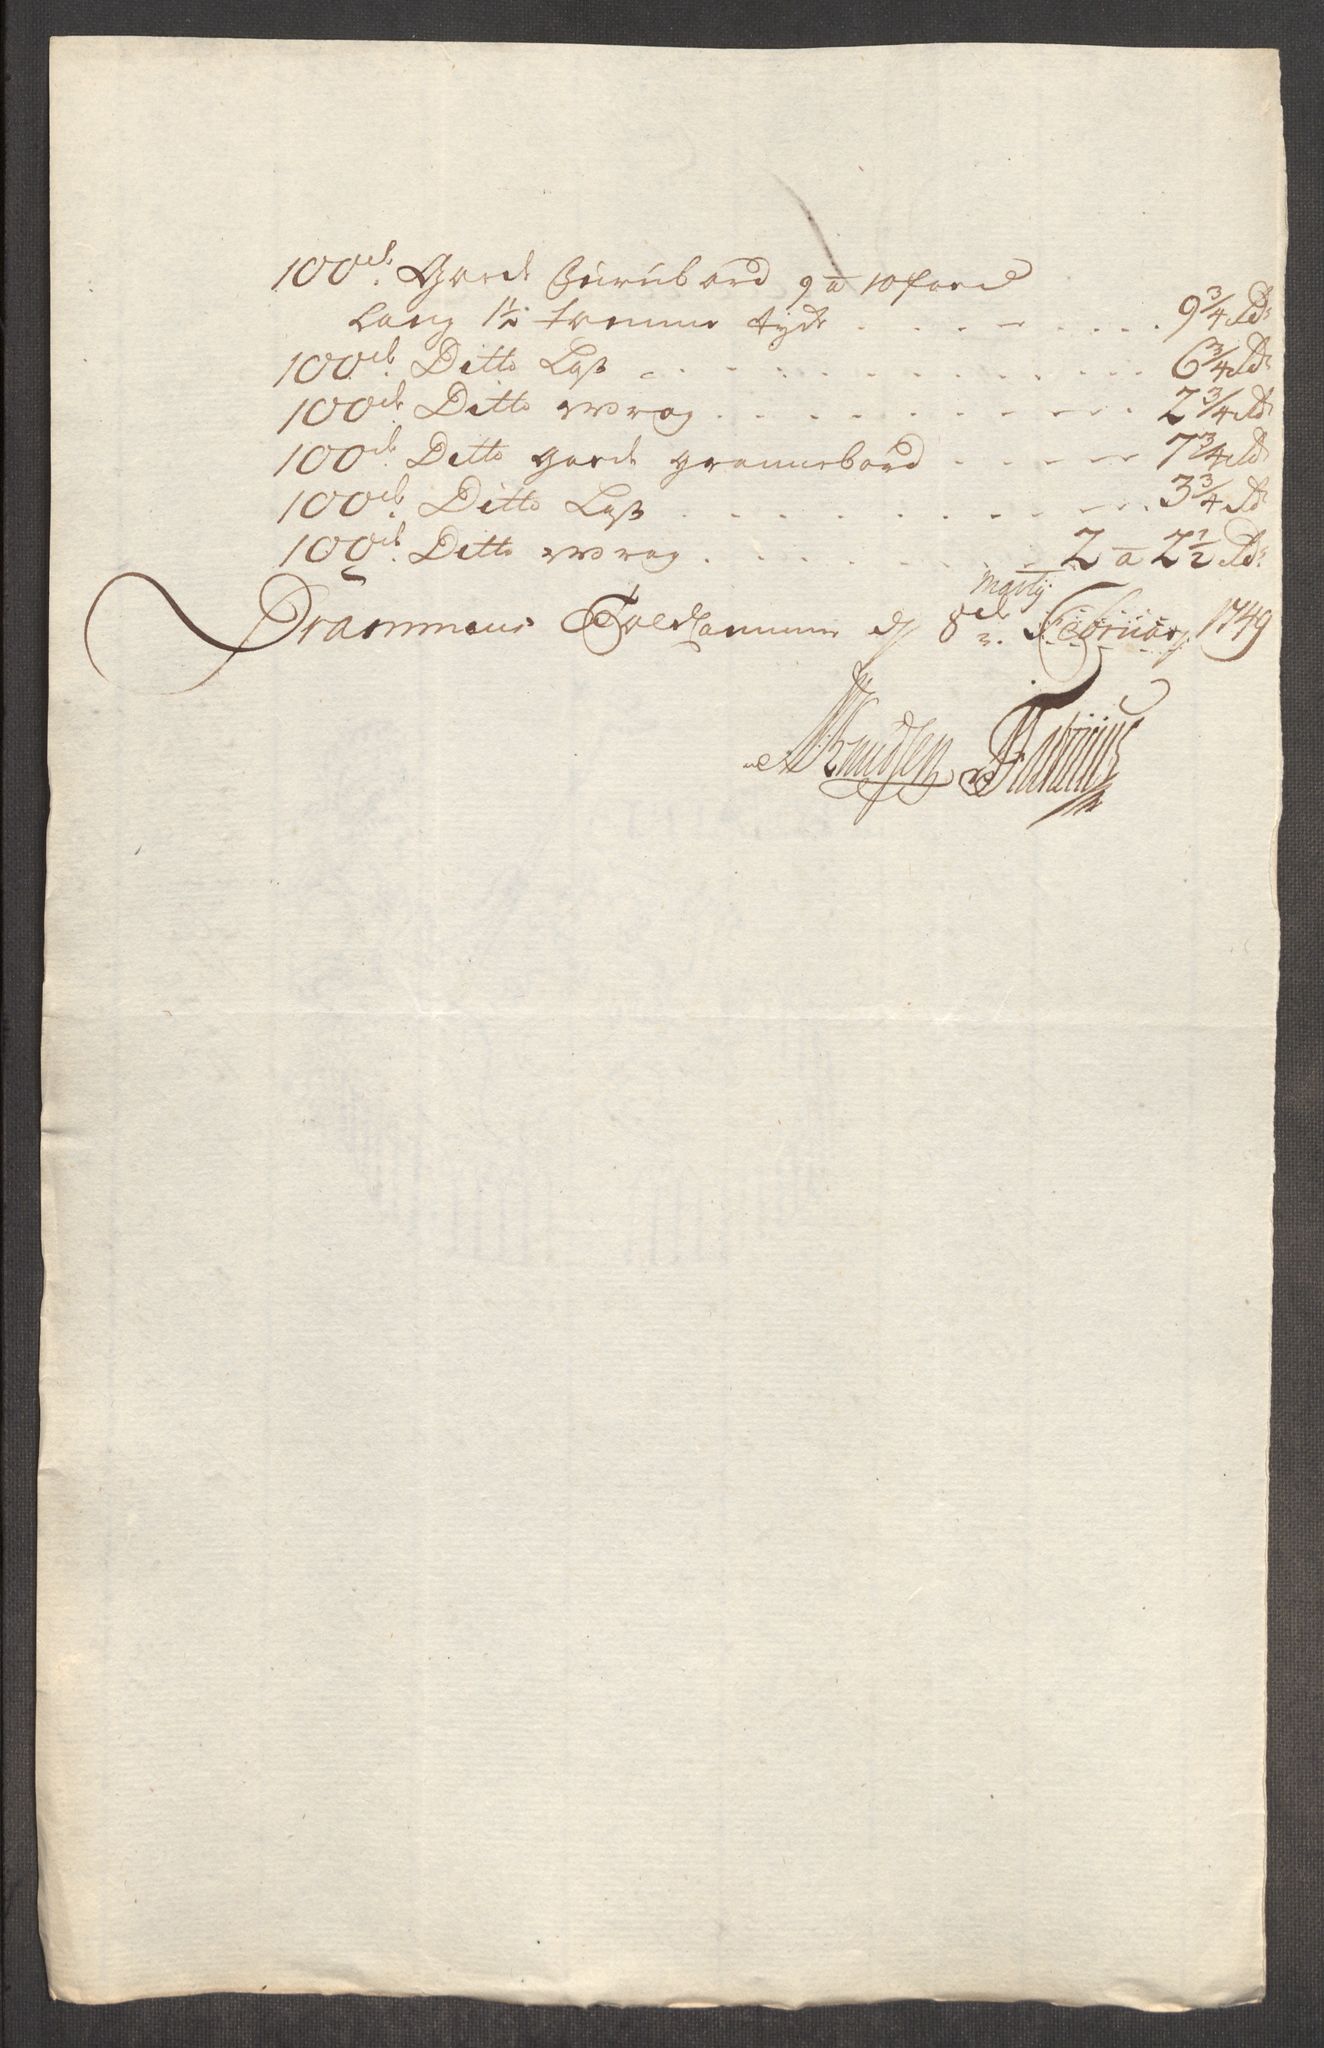 100de Gode Furubord 9 a 10 food
Lang 1½ tomme tyck . . . . . . . 9¾ Rdr
100de Ditto Last . . . . . . . . . . . . 6¾ Rdr
100de Ditto wrag . . . . . . . . . . 2¾ Rdr
100de Ditto gode granebord . . . . . 7¾ Rdr
100de Ditto Last . . . . . . . . . . . 3¾ Rdr
100de Ditto wrag . . . . . . . 2 a 2½ Rdr
Martij
Drammens Toldkammer d 8de Februarij 1749
Knudsen Fabritius